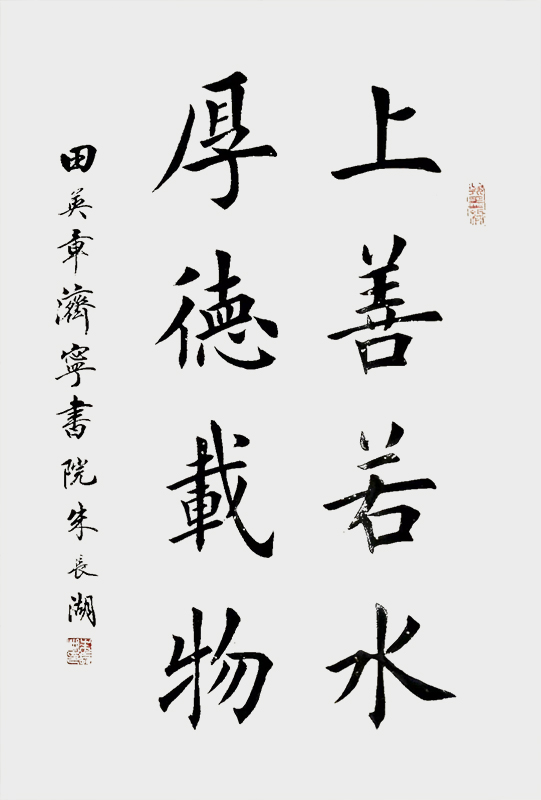 上善若水
厚德載物
田英章濟寧書院朱長湖